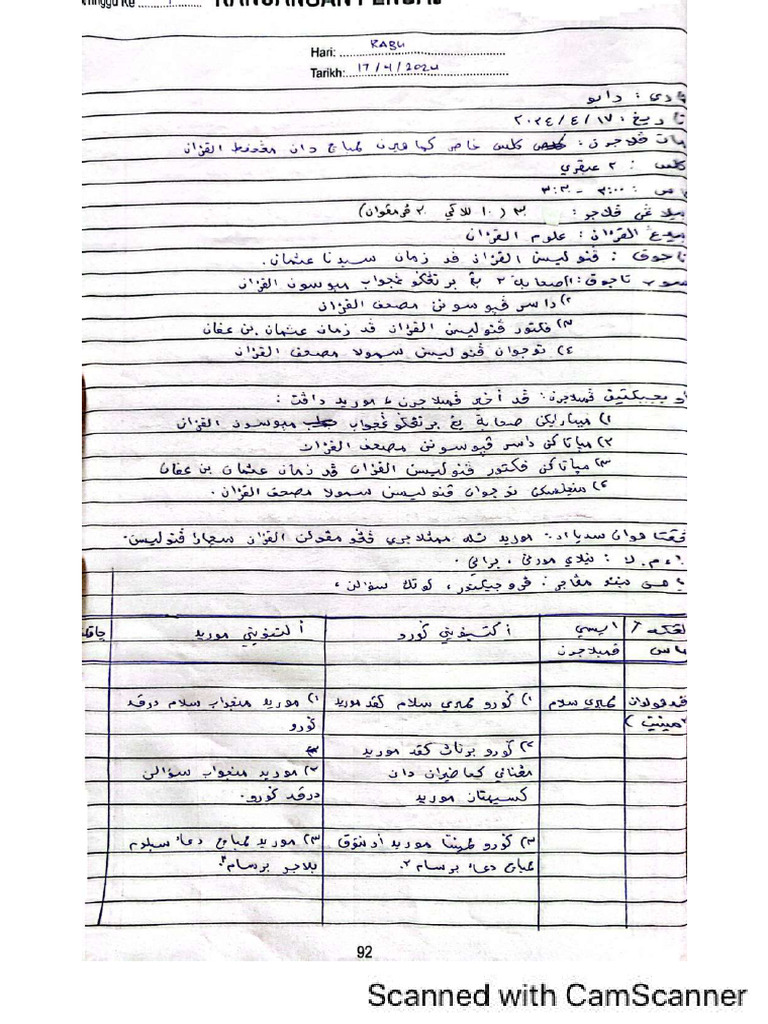 Minggu Ke ........1........ RANCANGAN PENGAJ
Hari: RABU
Tarikh: 17/4/2024
هاري : رابو
تاريخ : ١٧/٤/٢٠٢٤
مات ڤلاجرن : كلس خاص كماهيرن ممباچ دان مڠحفظ القرءان
كلس : ٢ عبقري
ماس : ٣:٠٠ - ٣:٣٠
بيلاڠن ڤلاجر : ٣ (١٠ للاكي ٢٠ ڤرمڤوان)
بيدڠ القرءان : علوم القرءان
تاجوق : ڤنوليسن القرءان ڤد زمان سيدنا عثمان.
سوب تاجوق : ١) صحابة٢ يڠ برتڠڬوڠجواب مڽوسون القرءان
٢) داسر ڤڽوسونن مصحف القرءان
٣) فكتور ڤنوليسن القرءان ڤد زمان عثمان بن عفان
٤) توجوان ڤنوليسن سمولا مصحف القرءان
اوبجيكتيف ڤمبلاجرن : ڤد أخير ڤمبلاجرن ٢ موريد داڤت :
١) مڽنارايكن صحابة يڠ برتڠڬوڠجواب مڽوسون القرءان
٢) مڽاتاكن داسر ڤڽوسونن مصحف القرءان
٣) مڽاتاكن فكتور ڤنوليسن القرءان ڤد زمان عثمان بن عفان
٤) منجلسكن توجوان ڤنوليسن سمولا مصحف القرءان.
ڤڠتاهوان سديا اد : موريد تله ممڤلاجري ڤڠومڤولن القرءان سچارا ڤنوليسن.
ا.م.لا : نيلاي مورني ، براني.
باهن بنتو مڠاجر : ڤروجيكتور ، كوتق سؤالن ،
لڠكه / ايسي اكتيۏيتي ڬورو اكتيۏيتي موريد چاتتن
ماس ڤمبلاجرن
ڤندهولوان ممبري سلام ١) ڬورو ممبري سلام كڤد موريد ١) موريد منجواب سلام درڤد
مينيت) ڬورو
٢) ڬورو برتاڽ كڤد موريد
مڠناءي كحاضيران دان ٢) موريد منجواب سؤالن
كصيحتن موريد درڤد ڬورو.
٣) ڬورو ممينتا موريد اونتوق ٣) موريد ممباچ دعاء سبلوم
ممباچ دعاء برسام٢. بلاجر برسام٢.
92
Scanned with CamScanner